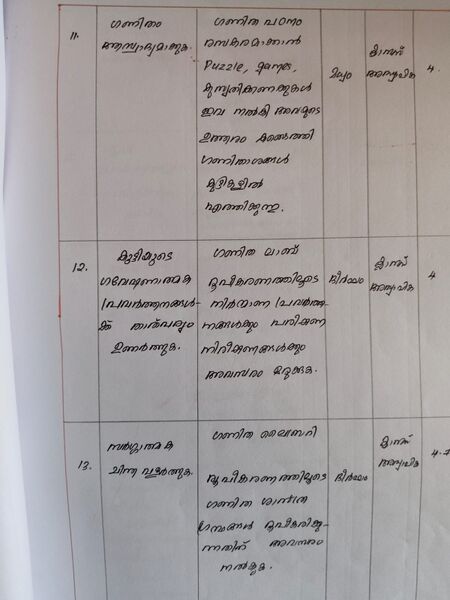 11.
ഗണിതം
ആസ്വാദ്യമാക്കുക.
ഗണിത പഠനം
രസകരമാക്കാൻ
Puzzle, games,
കുസൃതിക്കണക്കുകൾ
ഇവ നൽകി അവയുടെ
ഉത്തരം കണ്ടെത്തി
ഗണിതാശങ്ങൾ
കുട്ടികളിൽ
എത്തിക്കുന്നു.
ക്ലാസ്
അധ്യാപിക
4.
12.
കുട്ടിയുടെ
ഗവേഷണാത്മക
പ്രവർത്തനങ്ങൾ-
ക്ക് താൽപര്യം
ഉണർത്തുക.
ഗണിത ലാബ്
രൂപീകരണത്തിലൂടെ
നിർമ്മാണ പ്രവർത്ത-
നങ്ങൾക്കും പരീക്ഷണ
നിരീക്ഷണങ്ങൾക്കും
അവസരം ഒരുക്കുക.
ദീർഘം
ക്ലാസ്
അധ്യാപിക
4
13.
സർഗ്ഗാത്മക
ചിന്ത വളർത്തുക.
ഗണിത ലൈബ്രറി
രൂപീകരണത്തിലൂടെ
ഗണിത ശാസ്ത്ര
ഗ്രന്ഥങ്ങൾ രൂപീകരിക്കു-
ന്നതിന് അവസരം
നൽകുക.
ദീർഘം
ക്ലാസ്
അധ്യാപിക